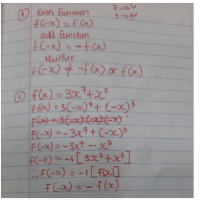 ① Even function
f(-x) = f(x)
odd function
f(-x) = -f(x)
Neither
f(-x) ≠ -f(x) or f(x)
① f(x) = 3x⁷ + x³
f(-x) = 3(-x)⁷ + (-x)³
f(-x) = -3x⁷ + (-x)³
f(-x) = -3x⁷ - x³
f(-x) = -1[3x⁷ + x³]
∴ f(-x) = -1[f(x)]
f(-x) = -f(x)